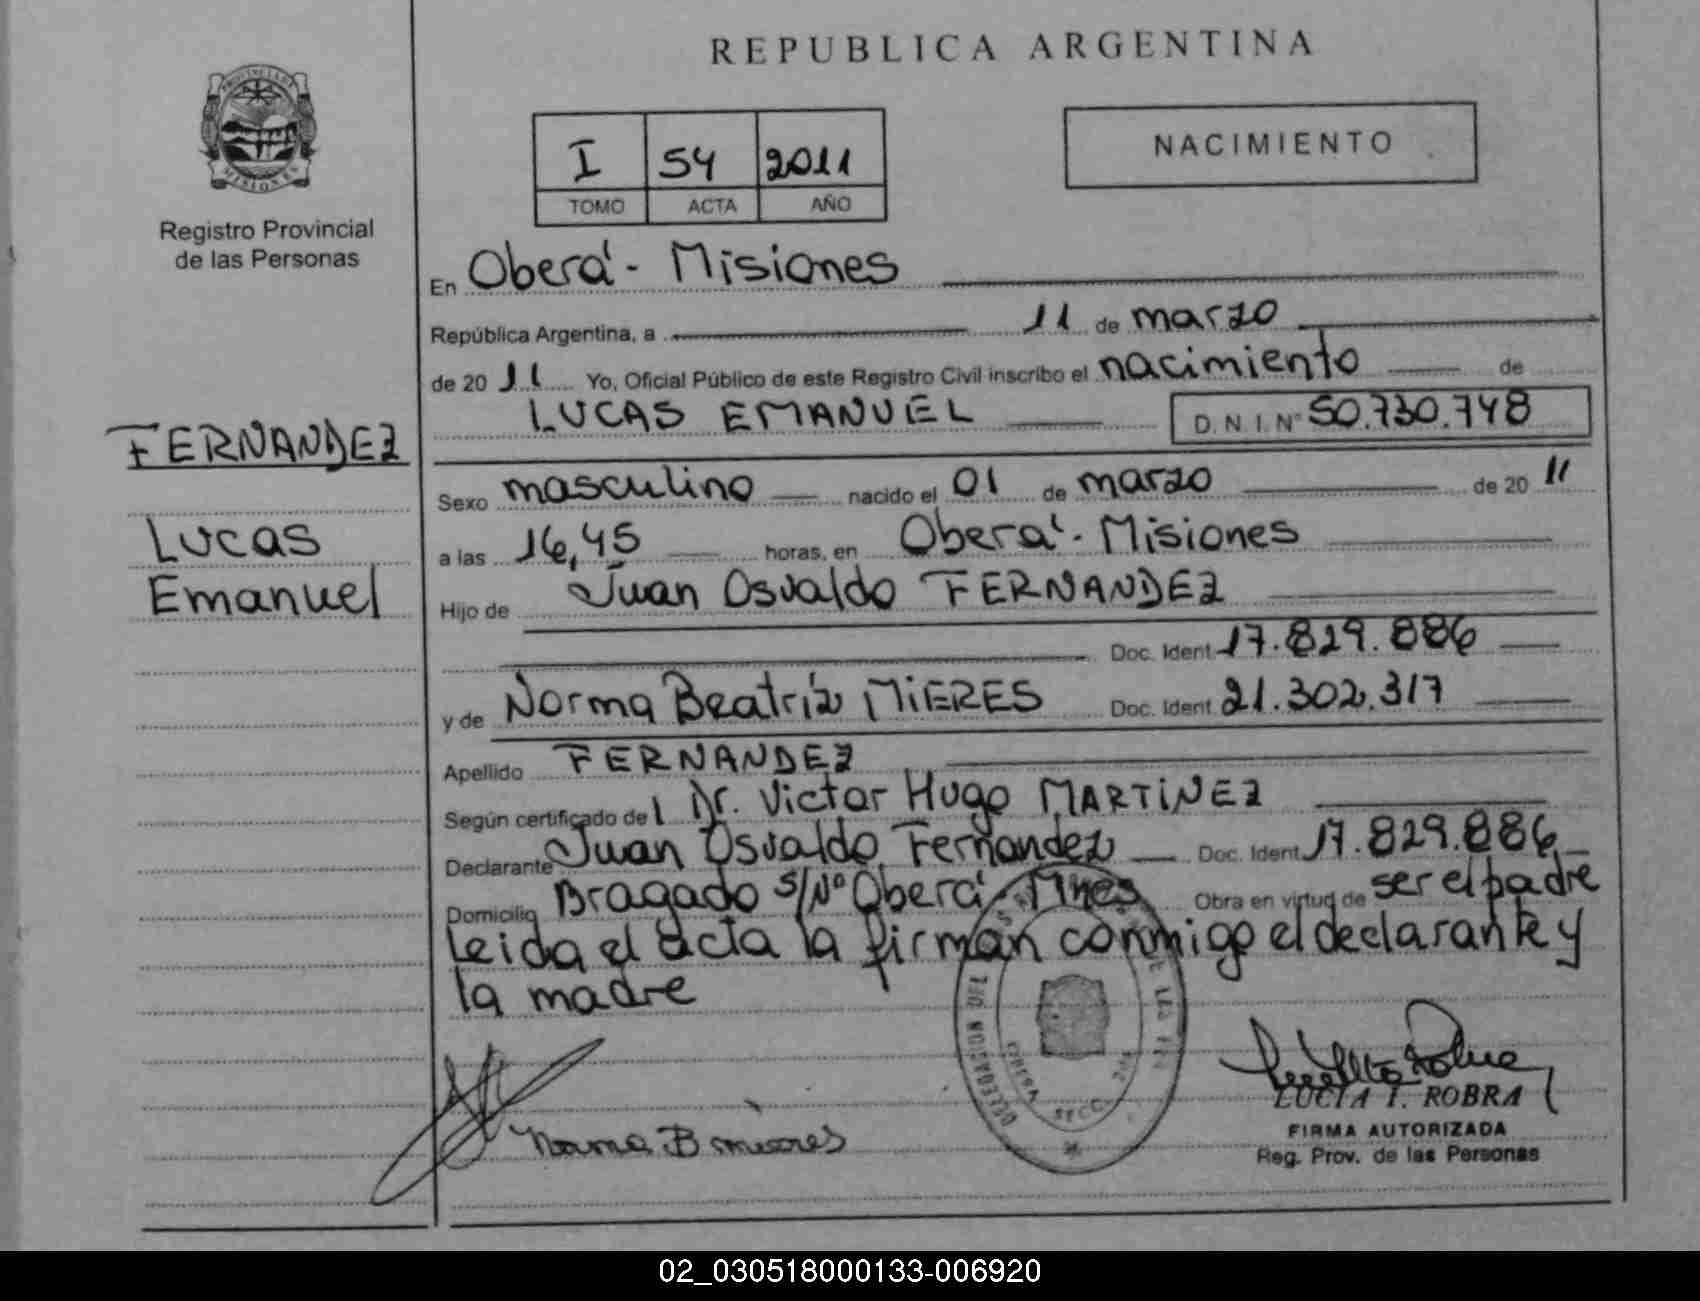 REPUBLICA ARGENTINA
NACIMIENTO
I 54 2011
TOMO ACTA AÑO
Registro Provincial
de las Personas
FERNANDEZ
Lucas
Emanuel
En Oberá - Misiones
República Argentina, a 11 de marzo
de 2011 Yo, Oficial Público de este Registro Civil inscribo el nacimiento de
LUCAS EMANUEL D.N.I. Nº 50.730.748
Sexo masculino nacido el 01 de marzo de 2011
a las 16,45 horas, en Oberá - Misiones
Hijo de Juan Osvaldo FERNANDEZ
Doc. Ident 17.829.886
y de Norma Beatríz MiERES Doc. Ident 21.302.317
Apellido FERNANDEZ
Según certificado del Dr. Victor Hugo MARTiNEZ
Declarante Juan Osvaldo Fernandez Doc. Ident 17.829.886
Domicilio Bragado s/Nº Oberá - Mnes Obra en virtud de ser el padre
Leida el acta la firman conmigo el declarante y
la madre
Norma B mieres
LUCIA I. ROBRA
FIRMA AUTORIZADA
Reg. Prov. de las Personas
DELEGACION DEL
02_030518000133-006920